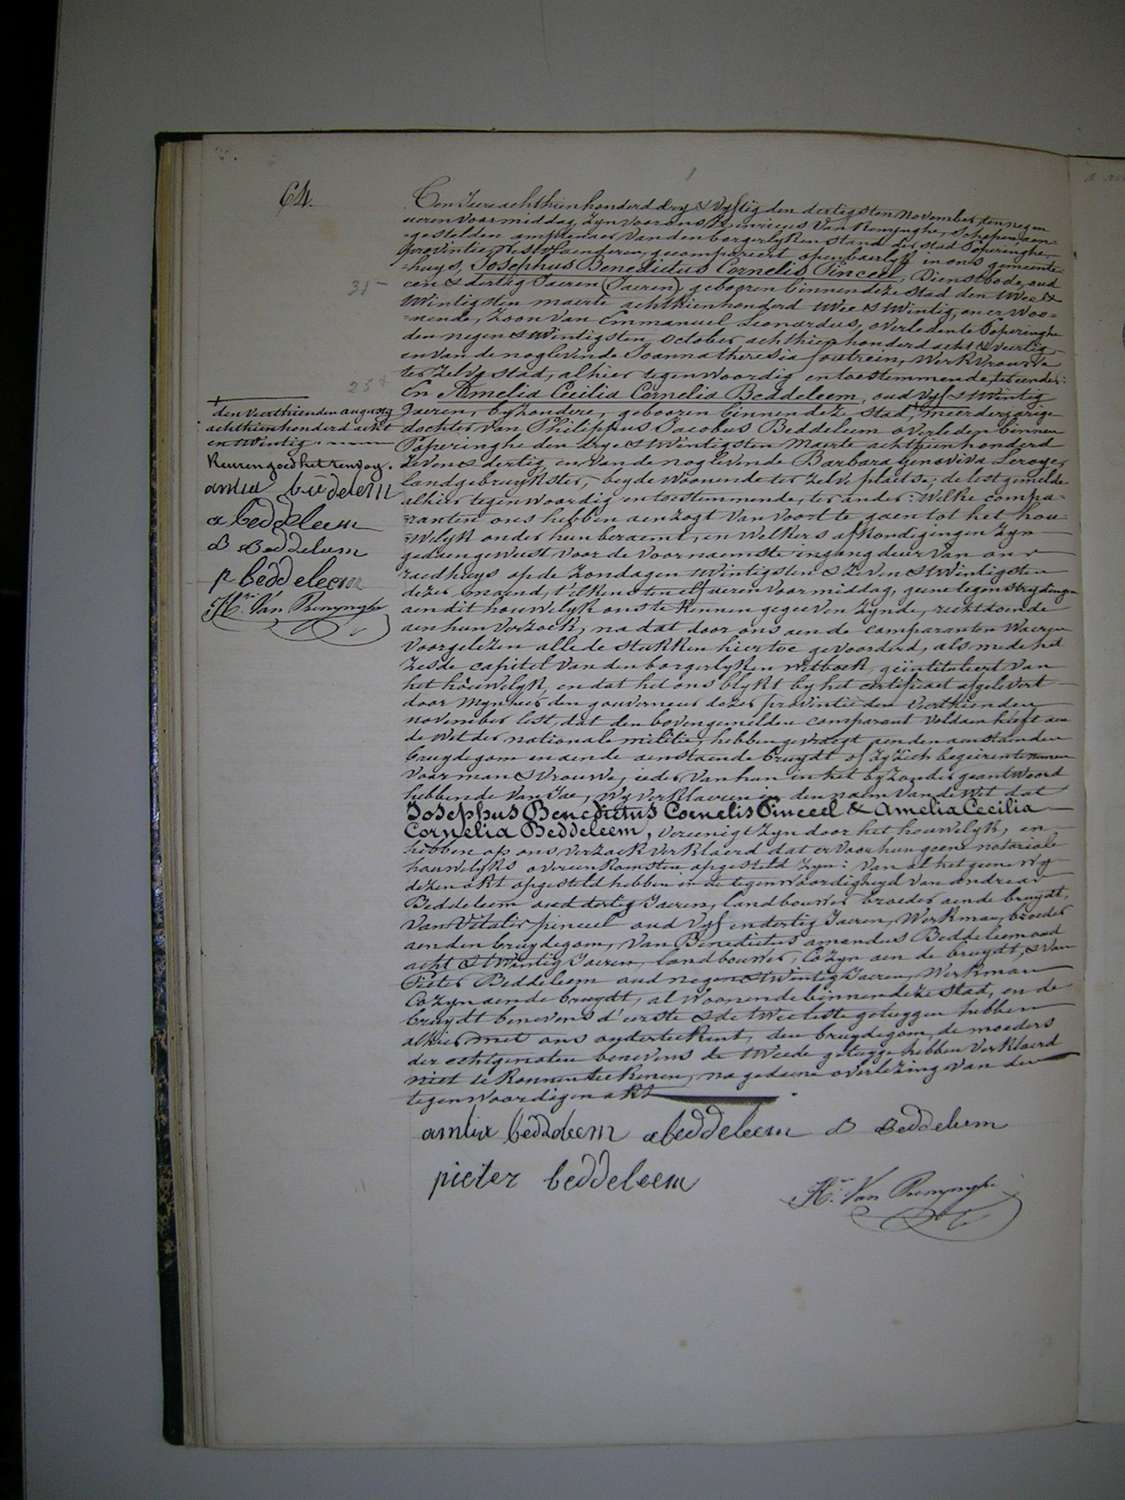 64.
Ten Jaere achthien honderd dry & vyftig den dertigsten november, ten negen
ueren voormiddag, zyn voor ons Henricus Van Renynghe, schepen, aen-
gestelden amptenaer van den borgerlyken stand der stad Poperinghe,
provintie Westvlaenderen, gecompareert openbaerlyk in ons gemeente
huys, Josephus Benedictus Cornelis Pinceel, Dienstbode, oud
31
een & dertig Jaeren (Jaeren) gebooren binnen deze stad den twee &
twintigsten maerte achthien honderd twee & twintig, en er woo-
nende, zoon van Emmanuel Leonardus, overleden te Poperinghe
den negen & twintigsten october achthien honderd acht & veertig
en van de noglevende Joanna theresia foutrein, Werkvrouwe
ter zelve stad, alhier tegenwoordig en toestemmende, ter eender:
25
En Amelia Cecilia Cornelia Beddeleem, oud vyf & twintig
Jaeren, byzondere, gebooren binnen deze stad, meerderjarige
dochter van Philippus Jacobus Beddeleem overleden binnen
Poperinghe den drye & twintigsten Maerte achthien honderd
zeven & dertig, en van de noglevende Barbara genoviva Leroye,
landgebruykster, beyde woonende ter zelve plaetse; de lestgemelde
alhier tegenwoordig en toestemmende, ter ander: Welke compa-
ranten ons hebben aenzogt van voort te gaen tot het hou-
welyk onder hun beraemt, en welkers afkondigingen zyn
gedaen geweest voor de voornaemste ingangdeur van ons
raedhuys op de zondagen twintigsten & zeven & twintigsten
dezer maend, t'elkens ten elf ueren voormiddag, geene tegenstrydingen
aen dit houwelyk ons te kennen gegeven zynde, rechtdoende
aen hun verzoek, na dat door ons aen de comparanten waeren
voorgelezen alle de stukken hier toe gevoorderd, als mede het
zesde capitel van den borgerlyken wetboek geïntituleert van
het houwelyk, en dat het ons blykt by het certificaet afgelevert
door Mynheer den gouverneur dezer provintie den veerthienden
november lest, dat den bovengemelden comparant voldaen heeft aen
de wet der nationale militie, hebben gevraegt aen den aenstaenden
bruydegom en aende aenstaende bruydt of zy zich begeiren te nemen
voor man & vrouwe, ieder van hun en het byzonder geantwoord
hebbende van Jae, Wy verklaeren in den naem van de Wet dat
Josephus Benedictus Cornelis Pinceel & Amelia Cecilia
Cornelia Beddeleem, vereenigt zyn door het houwelyk, en
hebben op ons verzoek verklaerd dat er voor hun geene notariale
houwelyks overeenkomsten opgesteld zyn: Van al het geene wy
dezen akt opgesteld hebben in de tegenwoordigheyd van andreas
Beddeleem oud dertig Jaeren, landbouwer broeder aende bruydt,
van Vitalis pinceel oud vyf en dertig Jaeren, Werkman, broeder
aen den bruydegom, van Benedictus amandus Beddeleem oud
acht & twintig Jaeren, landbouwer, Cozyn aen de bruydt, & van
Pieter Beddeleem oud negen & twintig Jaeren, Werkman
Cozyn aende bruydt, al woonende binnen deze stad, en de
bruydt benevens d'eerste & de twee leste getuygen hebben
alhier met ons onderteekent, den bruydegom, de moeders
der echtgenoten benevens de tweede getuyge hebben verklaerd
niet te konnen teekenen, na gedaene overlezing van den
tegenwoordigen akt
amlia beddeleem abeddeleem B Beddeleem
pieter beddeleem
Hri. Van Renynghe
den veerthienden augusty
achthien honderd acht
en twintig.
Keuren goed het renvoy.
amlia beddeleem
a beddeleem
B Beddeleem
p beddeleem
Hri. Van Renynghe